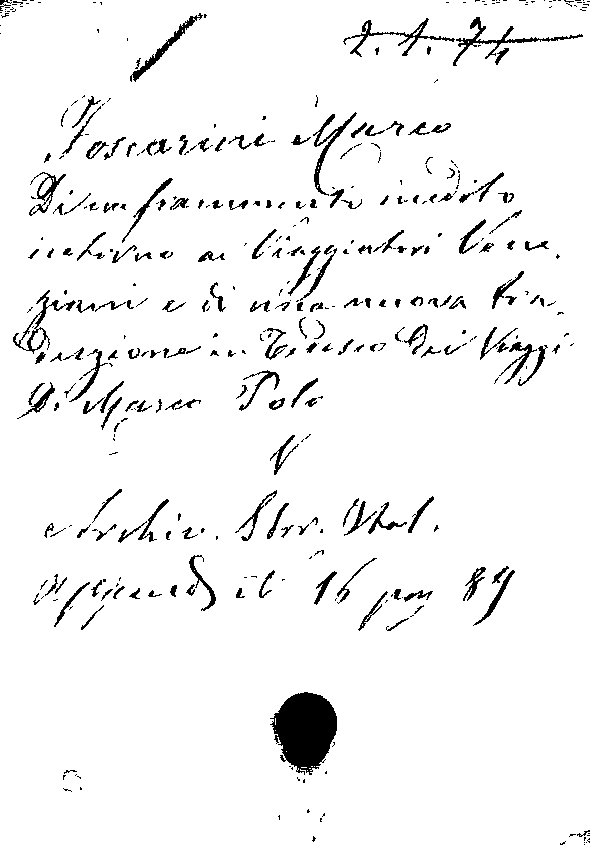 2. 1. 74
Foscarini Marco
Di un frammento inedito
intorno ai Viaggiatori Vene-
ziani e di una nuova tra-
duzione in Tedesco dei Viaggi
Di Marco Polo
V
Archiv. Stor. Ital.
Append 16 pag 89